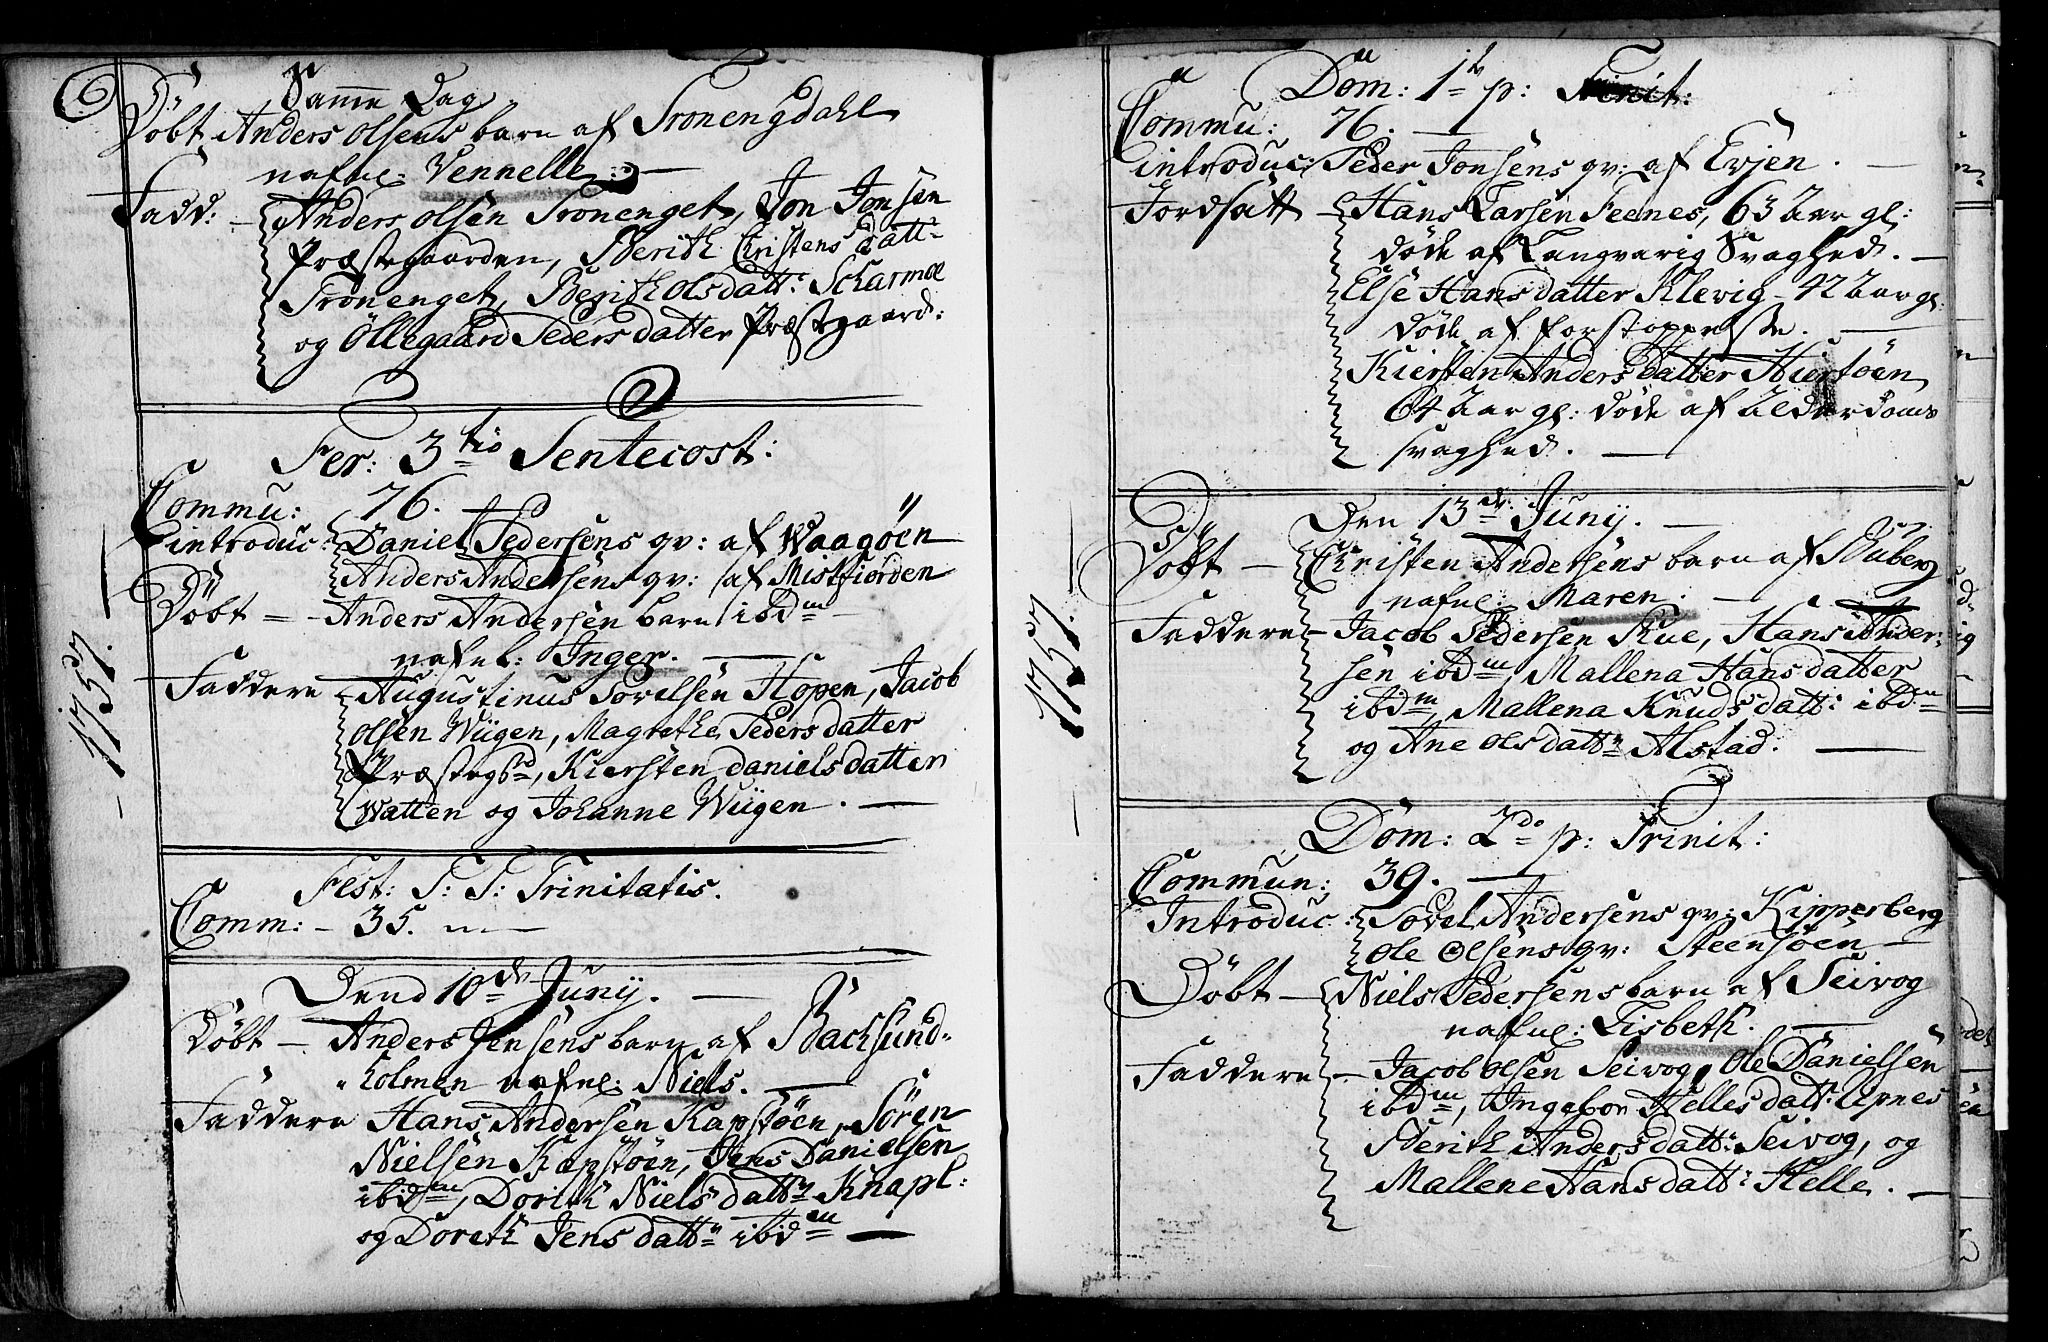 Samme Dag
Døbt Anders Olsens barn af Tronengdahl
nafnl: Vennelle. —
Fadd: – Anders Olsen Tronenget, Jon Jonsen
Præstegaarden, Berith Christens datt:
Tronenget, Berith Olsdatt: Scharmoe
og Ollegaard Peders datter Præstegaard:
Fer: 3tio Pentecost:
Commu: 76. —
introduc: Daniel Pedersens qv: af Waagöen
Anders Andersens qv: af Mistfiorden
Døbt – Anders Andersen barn ibdm
nafnl: Inger. —
Faddere Augustinus Torelsen Hopen, Jacob
Olsen Wiigen, Magrethe Peders datter
Præstegrd, Kiersten Daniels datter
Watten og Johanne Wiigen. —
1757.
Fest: S: S: Trinitatis.
Comm: – 35. —
Dend 10de Juny. —
Døbt – Anders Jensens barn af Backsund-
Kolmen nafnl: Niels. —
Faddere Hans Andersen Kapstöen, Sören
Nielsen Kapstöen, Jens Danielsen
ibidm, Dorith Niels datt: Knapl:
og Doreth Jens datt: ibdm —
Dom: 1te p: Trinit:
Commu: 76. —
introduc: Peder Jonsens qv: af Evjen. —
Jordsatt – Hans Larsen Feenes, 63 Aar gl:
døde af Langvarig Svaghed. —
Else Hans datter Klevig – 42 Aar gl:
døde af forstoppelse. —
Kiersten Anders datter Hiertöen
64 Aar gl: døde af Alderdoms
svaghed. —
Den 13de Juny. —
Døbt – Christen Andersens barn af Buberg
nafnl: Maren. —
Faddere – Jacob Pedersen Kue, Hans Ander:
sen ibdm, Mallena Hans datter
ibdm, Mallena Knuds datt: ibdm
og Ane Ols datt: Alstad. —
1757.
Dom: 2do p: Trinit:
Commun: 39. —
Introduc: Tovel Andersens qv: Kipperberg
Ole Olsens qv: Steensöen —
Døbt – Niels Pedersens barn af Seivog
nafnl: Lisbeth. —
Faddere – Jacob Olsen Seivog, Ole Danielsen
ibdm, Ingebor Helles datt: Apnes
Berith Anders datt: Seivog, og
Mallene Hans datt: Helle. —